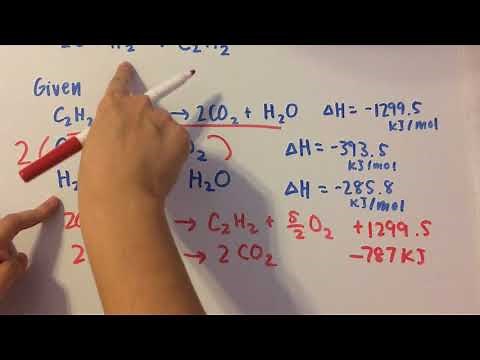 H₂ C₂H₂
Given
C₂H₂ → 2CO₂ + H₂O ΔH = -1299.5 kJ/mol
2( O₂ ) ΔH = -393.5 kJ/mol
H₂ H₂O ΔH = -285.8 kJ/mol
→ C₂H₂ + 5/2 O₂ +1299.5
2 → 2CO₂ -787 KJ